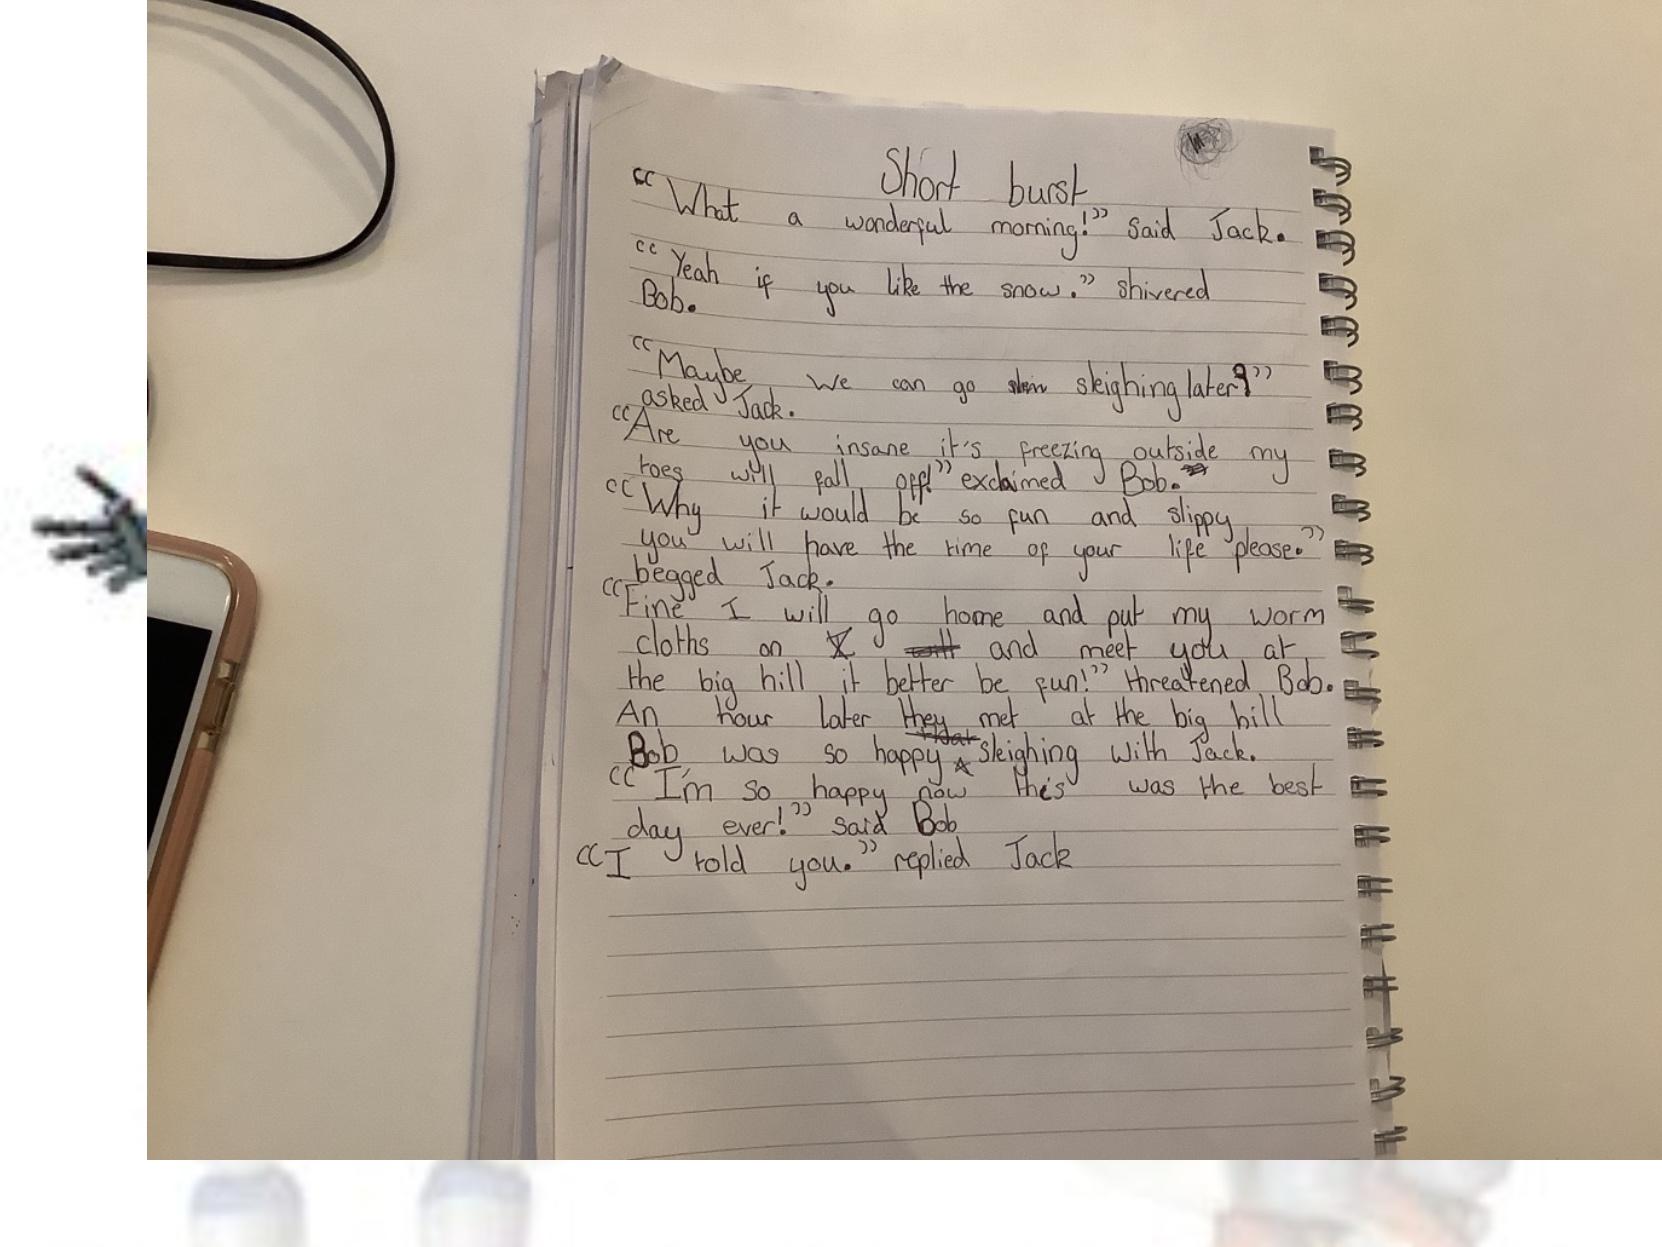 Short burst
“What a wonderful morning!” said Jack.
“Yeah if you like the snow.” shivered
Bob.
“Maybe we can go sleighing later?”
asked Jack.
“Are you insane it's freezing outside my
toes will fall off!” exclaimed Bob.
“Why it would be so fun and slippy
you will have the time of your life please.”
begged Jack.
“Fine I will go home and put my worm
cloths on and meet you at
the big hill it better be fun!” threatened Bob.
An hour later they met at the big hill
Bob was so happy sleighing with Jack.
“I'm so happy now this was the best
day ever!” said Bob
“I told you.” replied Jack